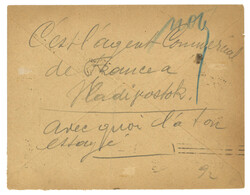 C'est l'agent Commercial
de France a
Vladivostok.
avec quoi l'a t'on